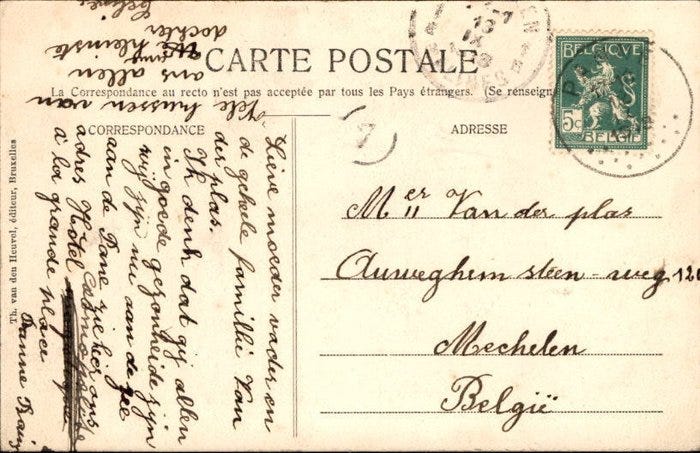 CARTE POSTALE
La Correspondance au recto n'est pas acceptée par tous les Pays étrangers. (Se renseign
CORRESPONDANCE
ADRESSE
BELGIQUE
5c
BELGIË
Th. van den Heuvel, éditeur, Bruxelles
Mer Van der plas
Auweghem steen-weg 126
Mechelen
België
Lieve moeder vader en
de geheele famillie Van
der plas.
Ik denk dat gij allen
in goede gezonheide zijn
wij zijn nu aan de zee
aan de Pane zie hier ons
adres Hotel Cosmopolite
à la grande place
vele kussen van
ons allen
kleinste
dochter